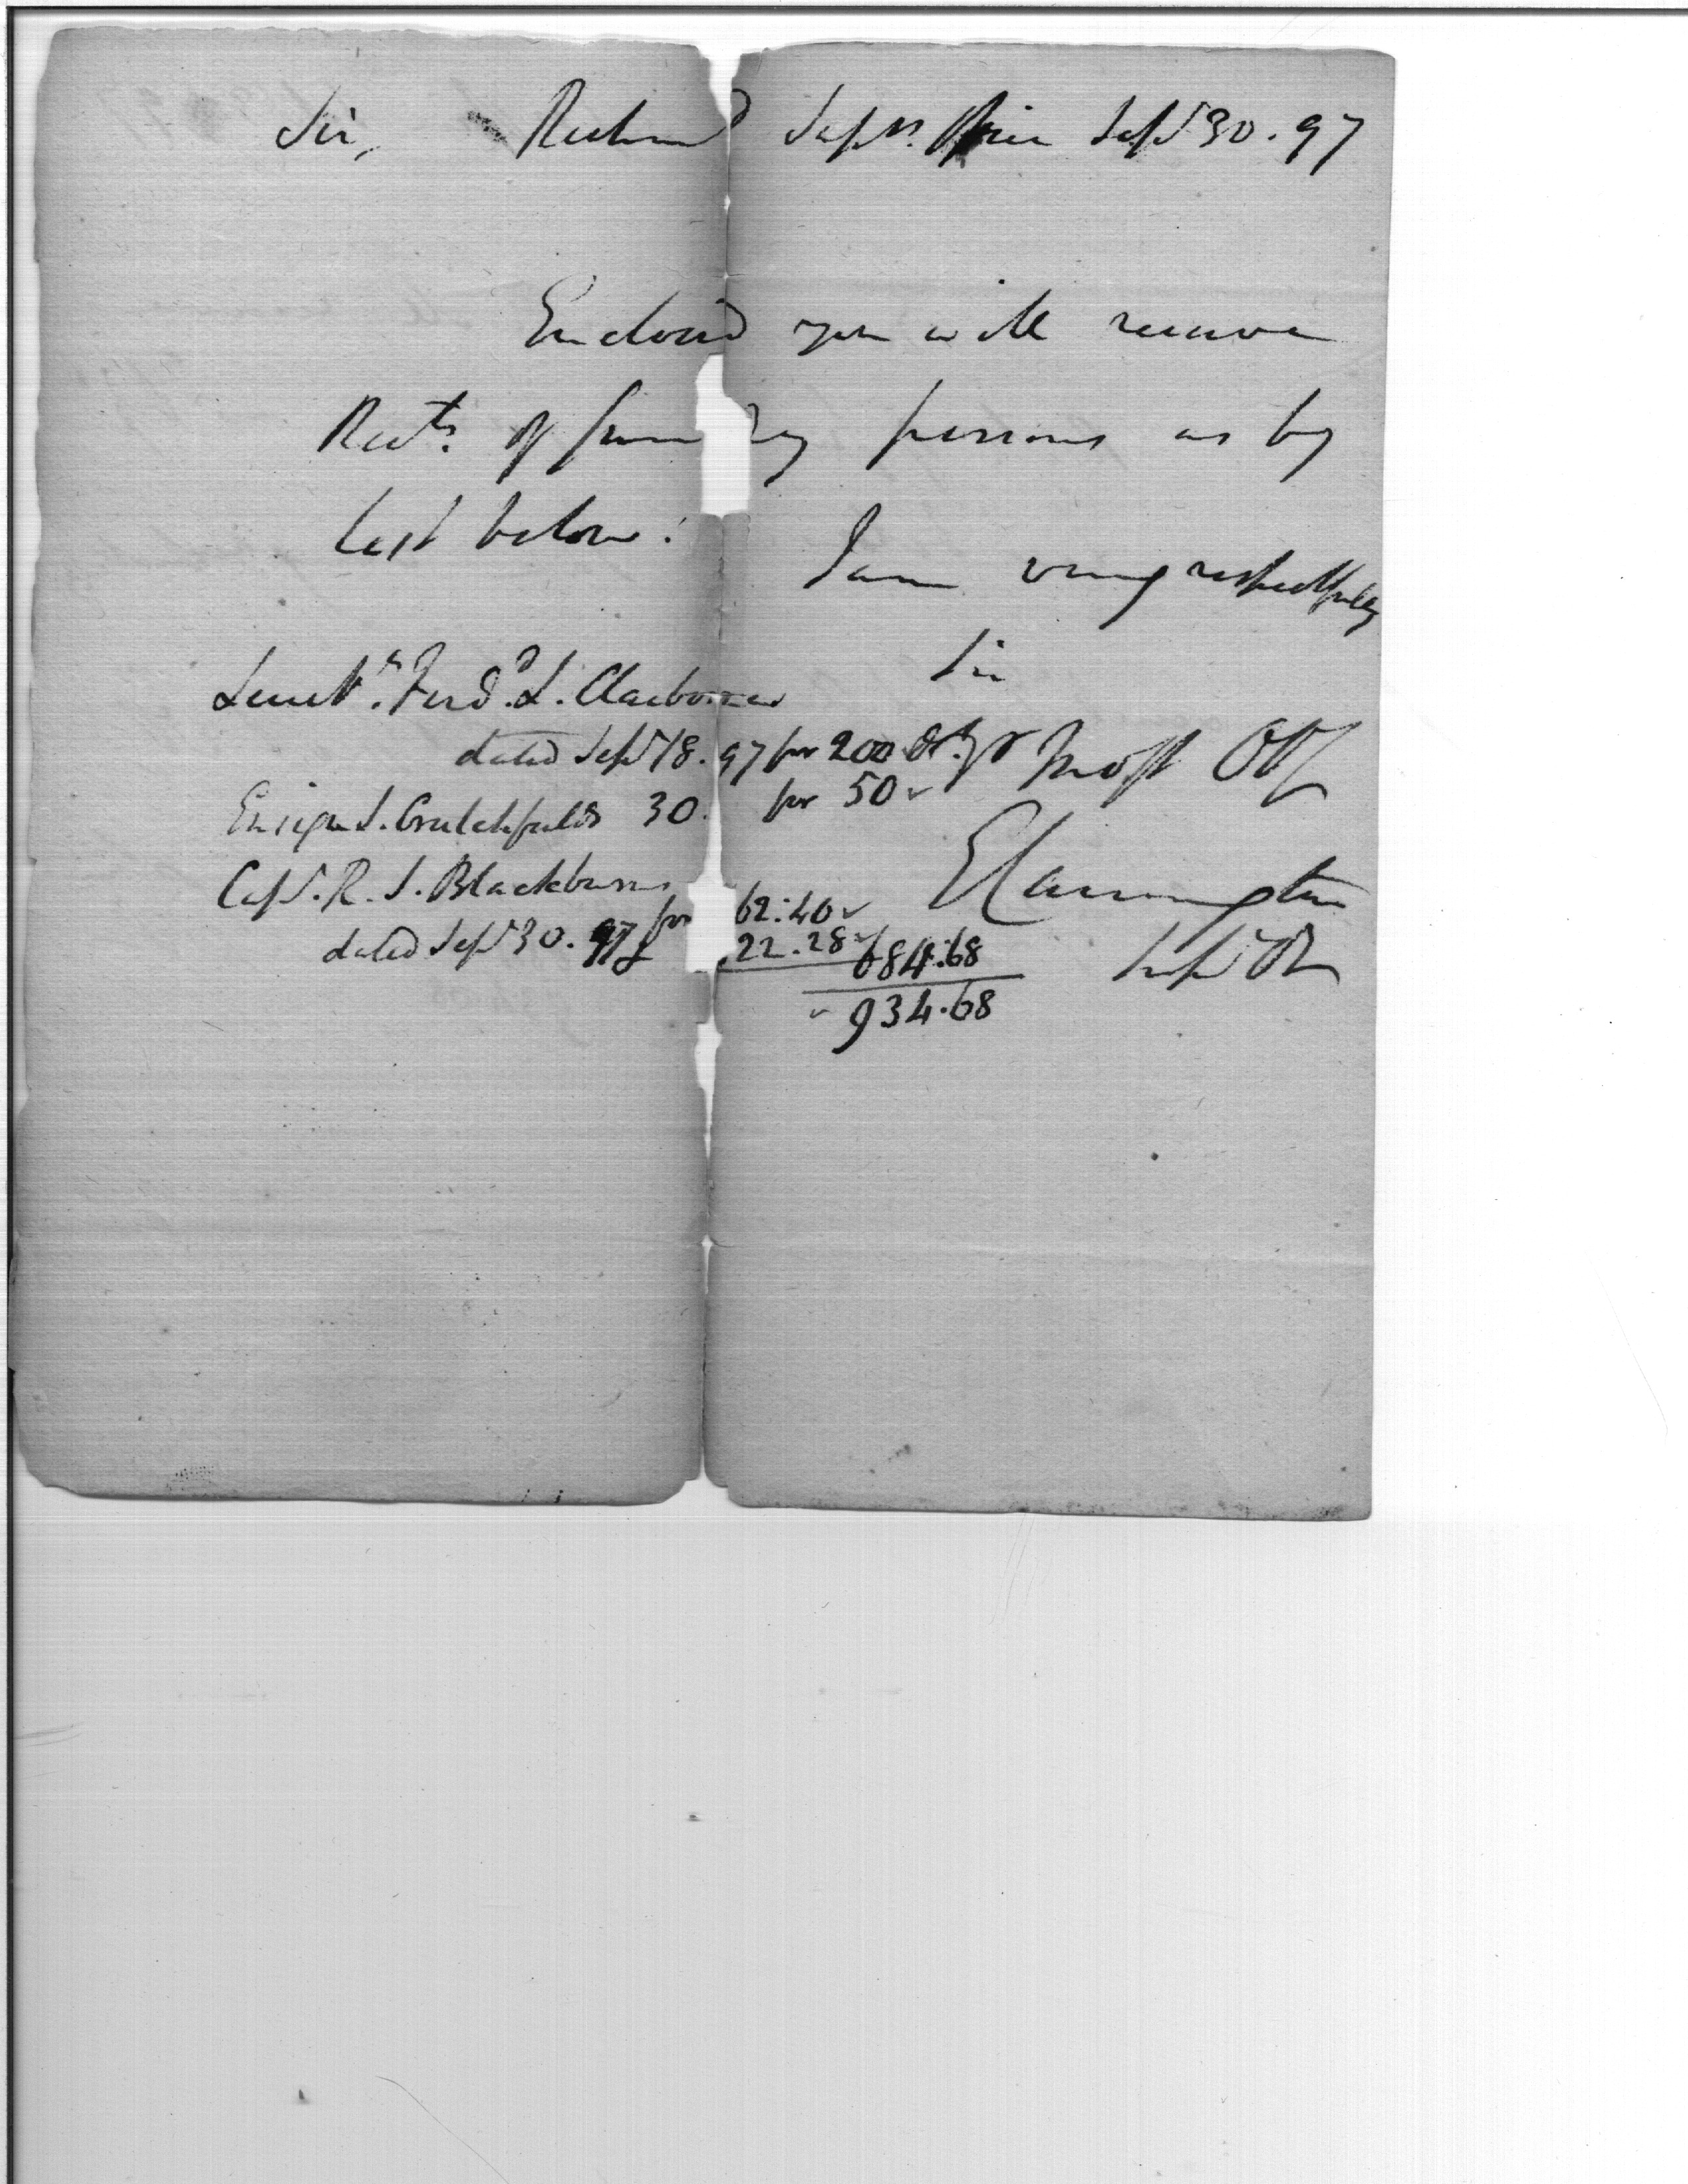 Sir, Richmd Supvrs Office Sept 30. 97
Enclosed you will receive
Rects. of sundry persons as by
list below:
I am very respectfully
Sir
Lieutt. Ferdd. L. Claiborne
dated Sept 18. 97 for 200 Ds. yr Most Ob
Ensign S. Crutchfields 30. for 50
Capt. R. S. Blackburn
E Carrington
for 62:40
dated Sept 30. 97 & 22.28
684:68
Supr
934.68